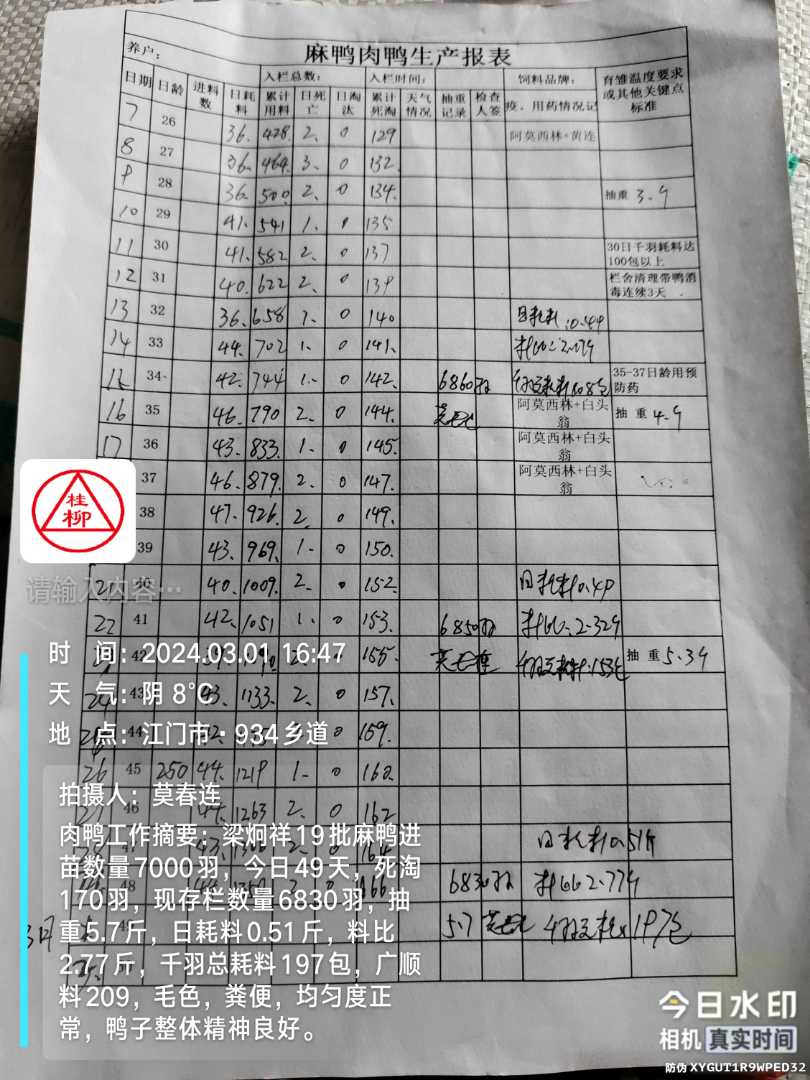 麻鸭肉鸭生产报表
养户：
入栏总数： 入栏时间： 饲料品牌： 育雏温度要求或其他关键点标准
日期 日龄 进料数 日耗料 累计用料 日死亡 日淘汰 累计死淘 天气情况 抽重记录 检查人签 疫、用药情况记
7 26 36. 428. 2. 0 129 阿莫西林+黄连
8 27 36. 464. 3. 0 132.
9 28 36. 500. 2. 0 134. 抽重 3.9
10 29 41. 541 1. 0 135
11 30 41. 582 2. 0 137 30日千羽耗料达100包以上
12 31 40. 622 2. 0 139 栏舍清理带鸭消毒连续3天
13 32 36. 658 1. 0 140 日耗料:0.49
14 33 44. 702 1. 0 141. 料比:2.07
15 34 42. 744 1. 0 142. 6860羽 35-37日龄用预防药
16 35 46. 790 2. 0 144. 阿莫西林+白头翁 抽重 4.9
17 36 43. 833. 1. 0 145. 阿莫西林+白头翁
37 46. 879. 2. 0 147. 阿莫西林+白头翁
38 47. 926. 2. 0 149.
39 43. 969. 1. 0 150.
21 40 40. 1009. 2. 0 152. 日耗料0.49
22 41 42. 1051 1. 0 153. 6850羽 料比:2.32
42 2. 155. 抽重 5.3
24 43 43. 1133. 2. 0 157.
44 2. 0 159.
26 45 250 44. 1219 1. 0 160.
46 44. 1263 2. 0 162
43. 日耗料0.51斤
48 166. 6830羽 料比2.77
3月 5.7 197包
桂柳
请输入内容…
时 间：2024.03.01 16:47
天 气：阴 8℃
地 点：江门市·934乡道
拍摄人：莫春连
肉鸭工作摘要：梁炯祥19批麻鸭进
苗数量7000羽，今日49天，死淘
170羽，现存栏数量6830羽，抽
重5.7斤，日耗料0.51斤，料比
2.77斤，千羽总耗料197包，广顺
料209，毛色，粪便，均匀度正
常，鸭子整体精神良好。
今日水印
相机 真实时间
防伪 XYGUT1R9WPED32